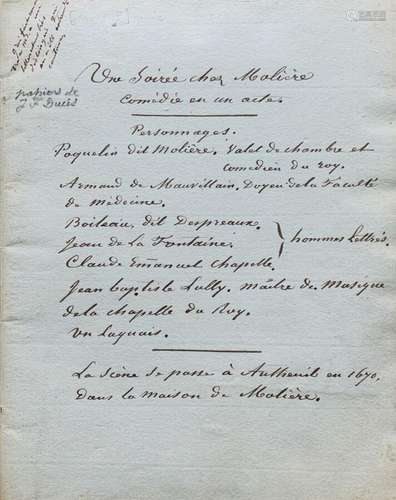 papiers de
J F Ducis
Une Soirée chez Molière
Comédie en un acte.
Personnages.
Poquelin dit Molière. Valet de chambre et
comédien du roy.
Armand de Mauvillain. Doyen de la Faculté
de médecine.
Boileau, dit Despreaux.
Jean de la Fontaine.
hommes Lettrés.
Claude Emanuel Chapelle.
Jean Baptiste Lully. maitre de Musique
de la chapelle du Roy.
Un Laquais.
La scène se passe à Autheuil en 1670.
dans la maison de Molière.